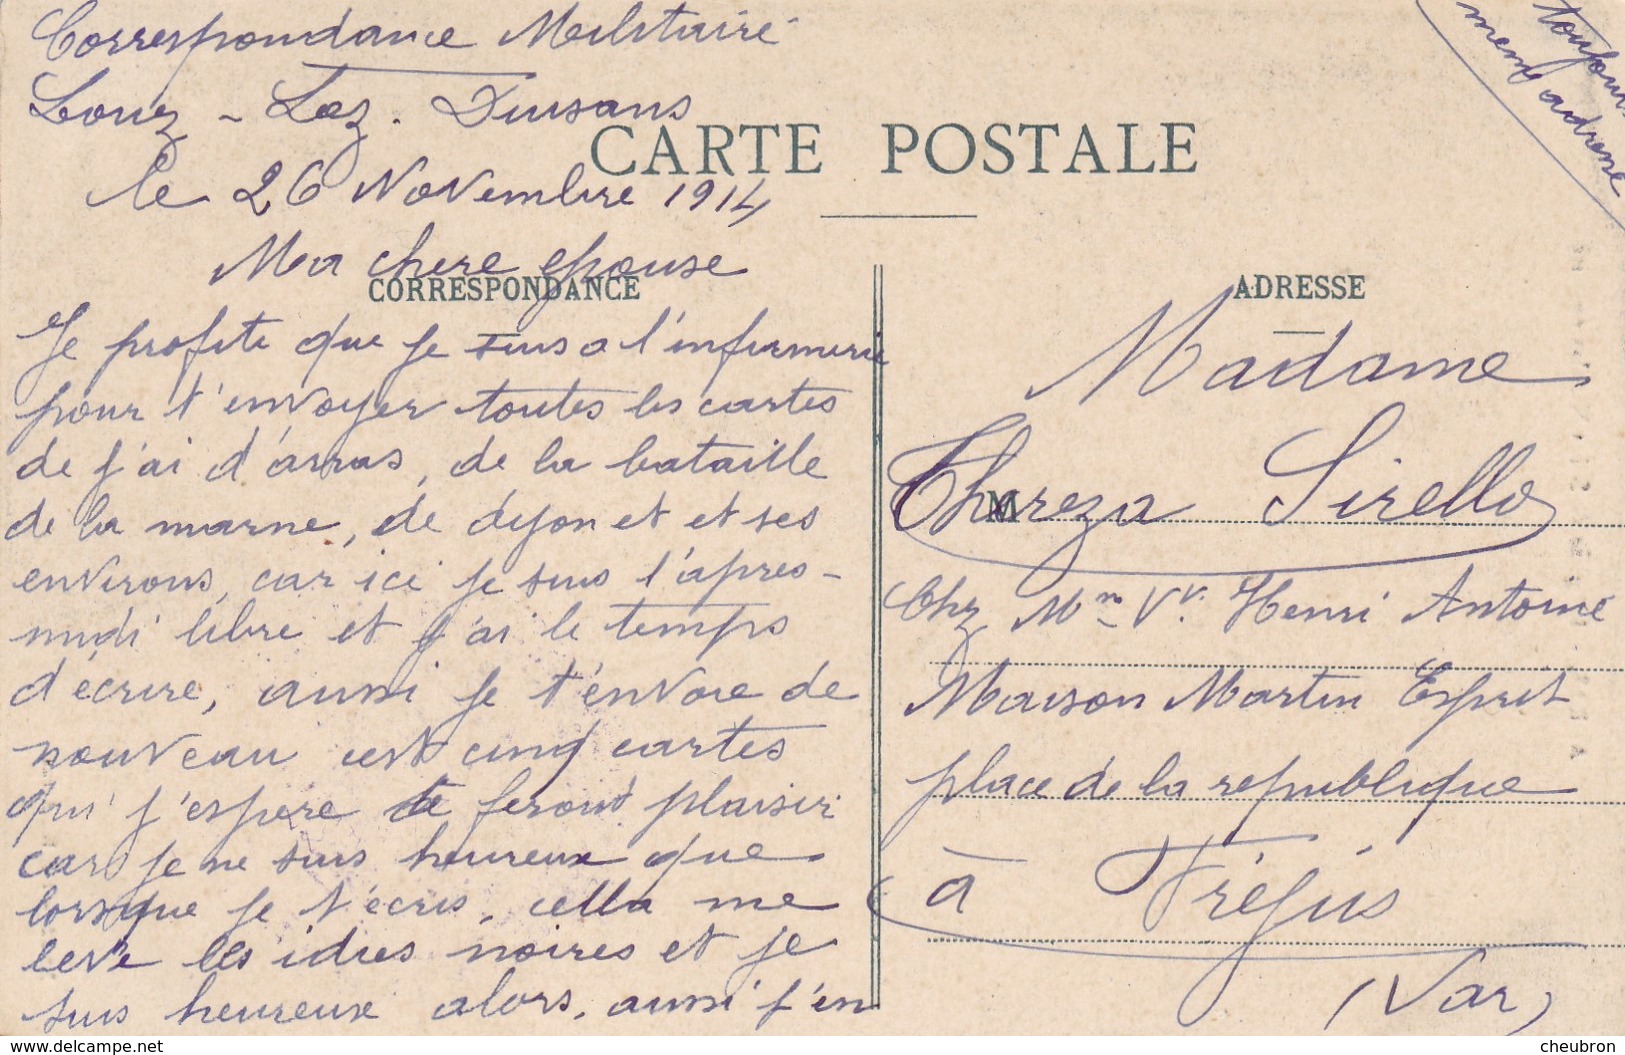 Correspondance Militaire
Louez - Lez. Duisans
le 26 Novembre 1914
Ma chere epouse
CARTE POSTALE
CORRESPONDANCE
Je profite que je suis a l'infirmerie
pour t'envoyer toutes les cartes
de j'ai d'arras, de la bataille
de la marne, de dijon et et ses
environs, car ici je suis l'apres-
midi libre et j'ai le temps
d'écrire, aussi je t'envoie de
nouveau cest cinq cartes
qui j'espere te feront plaisir
car je ne suis heureux que
lorsque je t'écris, cella me
leve les idées noires et je
suis heureux alors, aussi j'en
toujours
meme adresse
ADRESSE
Madame
M
Thereza Sirello
Chz Mm Vv. Henri Antoine
Maison Martin Esprit
place de la republique
à Fréjus
(Var)
www.delcampe.net
cheubron